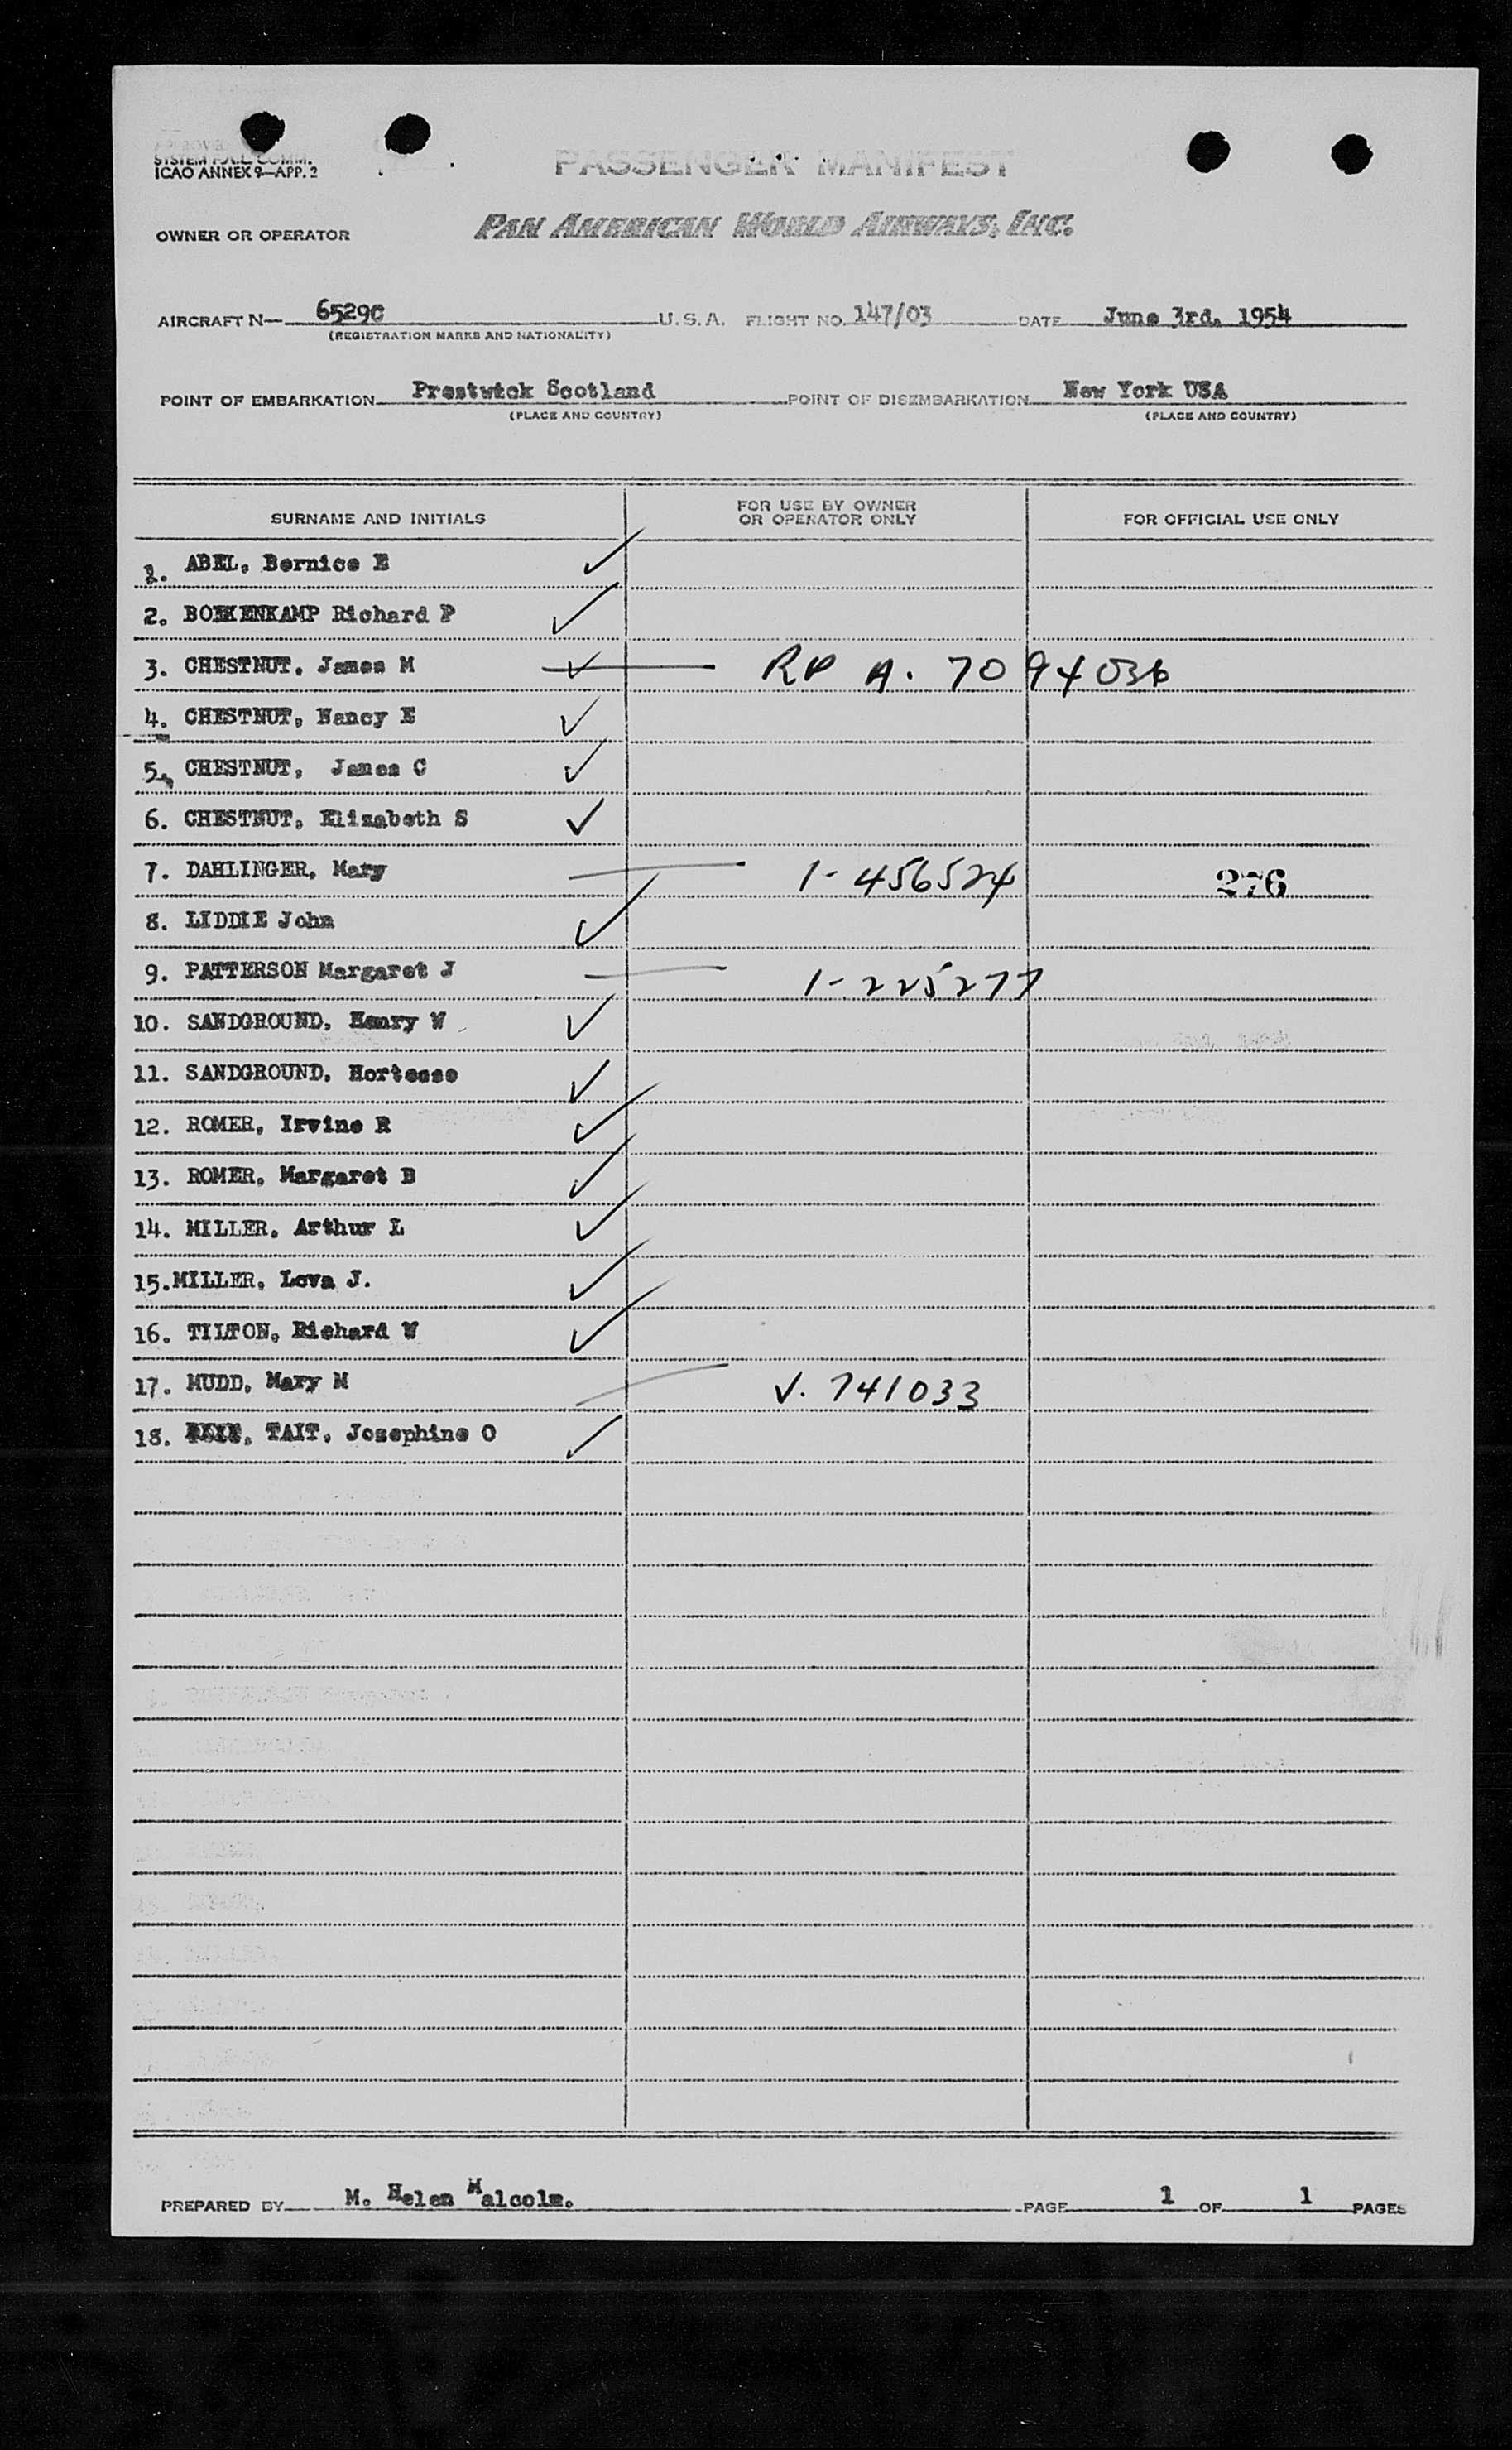 SYSTEM FAL COMM.
ICAO ANNEX 9—APP. 2
PASSENGER MANIFEST
OWNER OR OPERATOR PAN AMERICAN WORLD AIRWAYS, INC.
AIRCRAFT N— 6529C U.S.A. FLIGHT NO. 147/03 DATE June 3rd. 1954
(REGISTRATION MARKS AND NATIONALITY)
POINT OF EMBARKATION Prestwick Scotland POINT OF DISEMBARKATION New York USA
(PLACE AND COUNTRY) (PLACE AND COUNTRY)
SURNAME AND INITIALS FOR USE BY OWNER OR OPERATOR ONLY FOR OFFICIAL USE ONLY
1. ABEL, Bernice E
2. BOEKENKAMP Richard P
3. CHESTNUT, James M RP A. 7094036
4. CHESTNUT, Nancy E
5. CHESTNUT, James C
6. CHESTNUT, Elizabeth S
7. DAHLINGER, Mary 1-456524 276
8. LIDDIE John
9. PATTERSON Margaret J 1-225277
10. SANDGROUND, Henry W
11. SANDGROUND, Hortense
12. ROMER, Irvine R
13. ROMER, Margaret B
14. MILLER, Arthur L
15.MILLER, Lova J.
16. TILTON, Richard W
17. MUDD, Mary M V. 741033
18. TAIT, Josephine O
PREPARED BY M. Helen Malcolm. PAGE 1 OF 1 PAGES